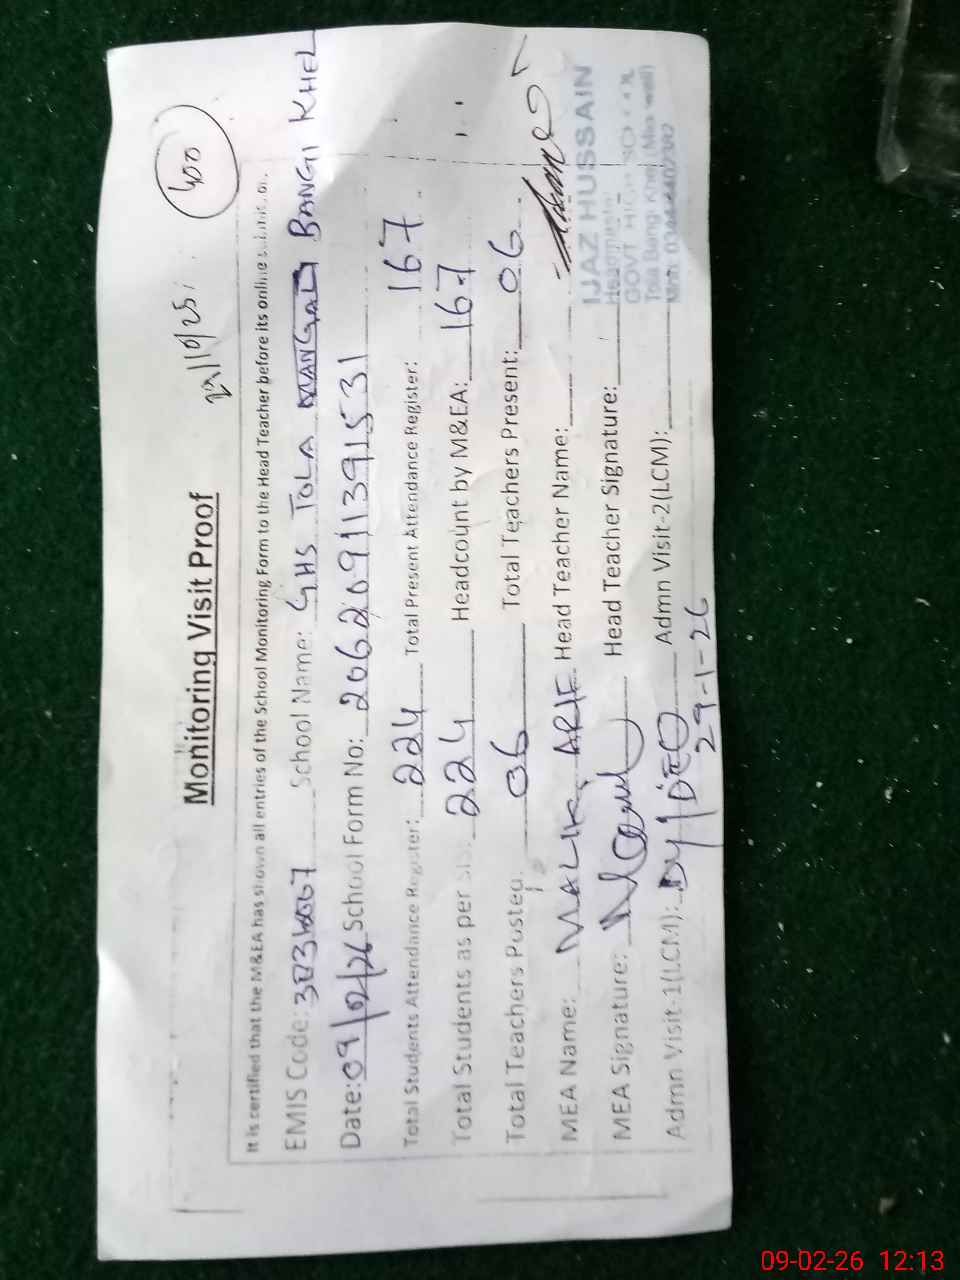 29/10/25
400
Monitoring Visit Proof
It is certified that the M&EA has shown all entries of the School Monitoring Form to the Head Teacher before its online
EMIS Code: School Name: GHS TOLA MANGALI BANGI KHEL
Date: 09/02/26 School Form No: 206209113915 31
Total Students Attendance Register: 224 Total Present Attendance Register: 167
Total Students as per SIS: 224 Headcount by M&EA: 167
Total Teachers Posted: 06 Total Teachers Present: 06
MEA Name: MALIK ARIF Head Teacher Name:
MEA Signature: Head Teacher Signature:
Admn Visit-1(LCM): DY/DEO Admn Visit-2(LCM):
29-1-26
IJAZ HUSSAIN
Headmaster
GOVT HIGH SCHOOL
Tola Bangi Khel
09-02-26 12:13